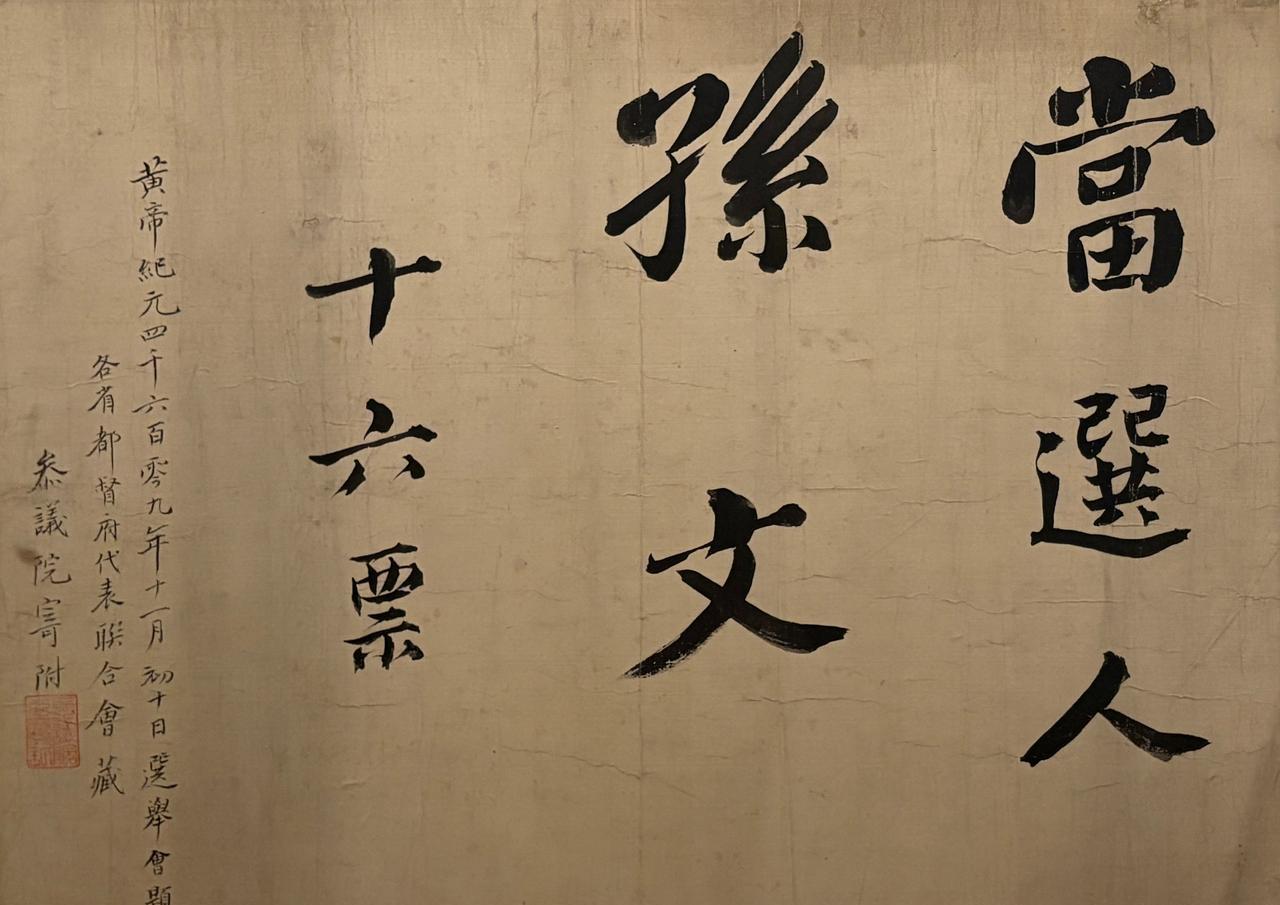 當選人
孫文
十六票
黃帝紀元四千六百零九年十一月初十日選舉會題
各省都督府代表聯合會藏
叅議院寄附